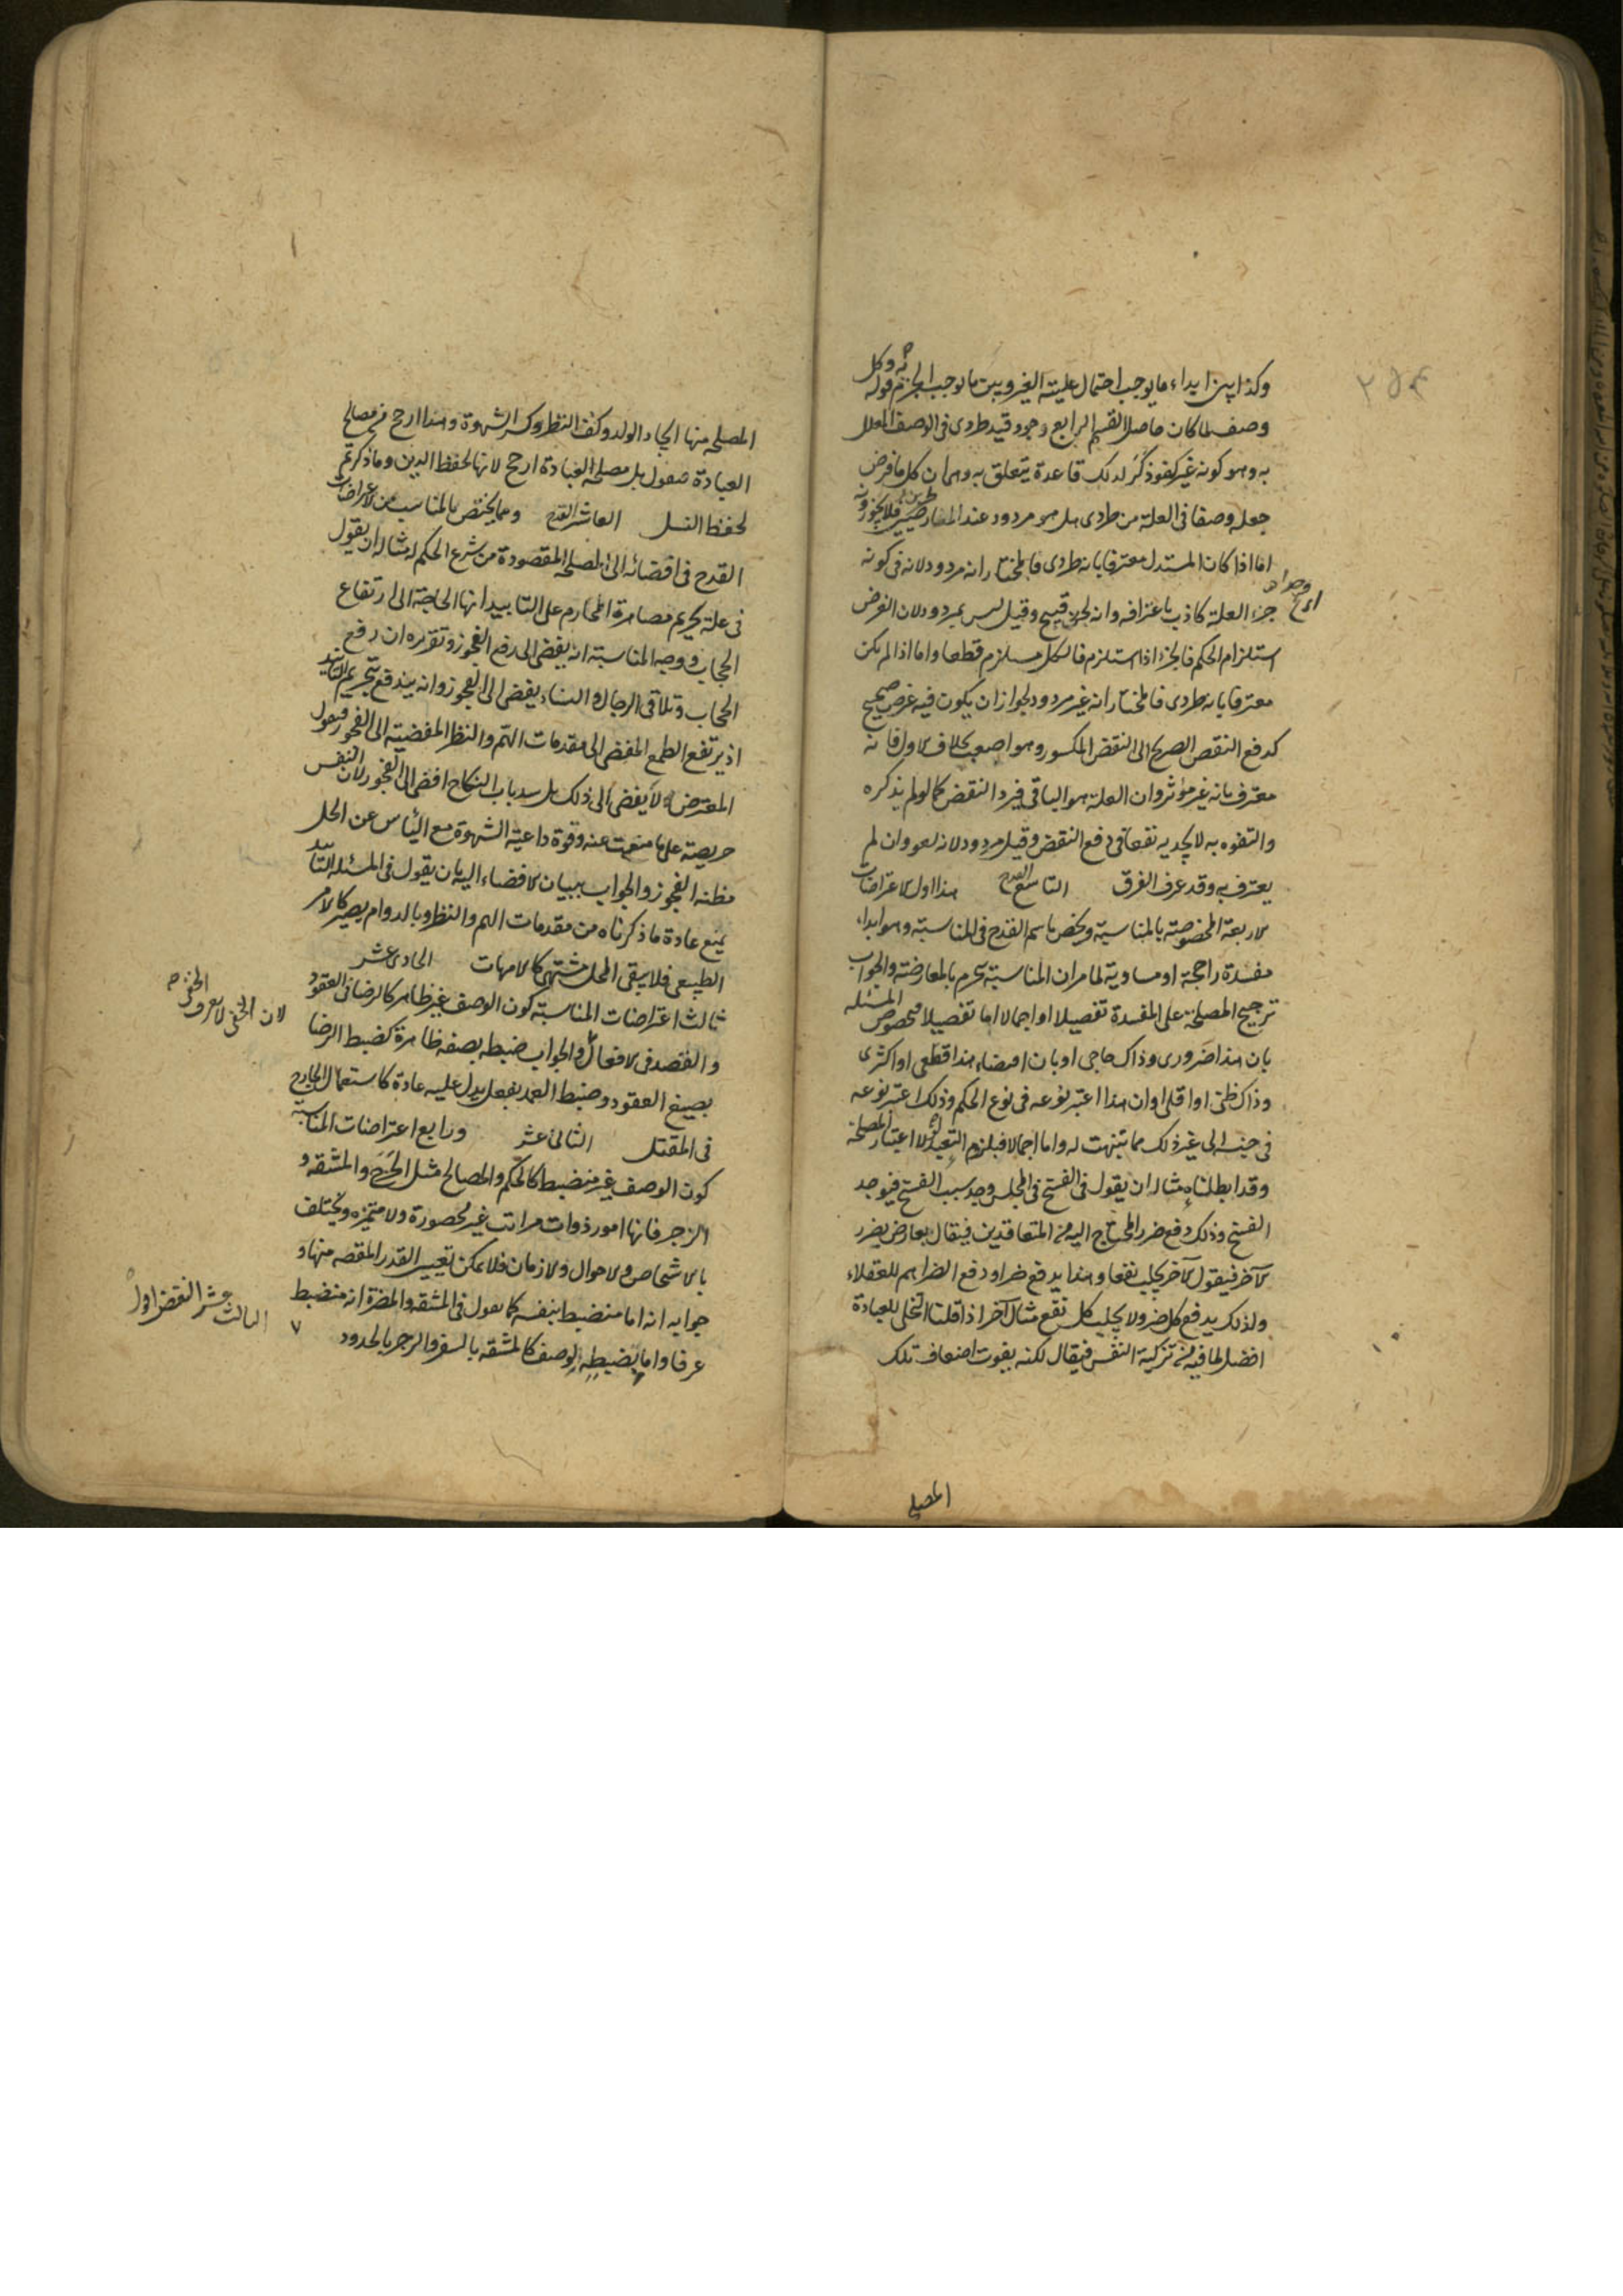 وكذا بين ابداء ما يوجب احتمال علية الغير وبين ما يوجب الجزم قوله وكل
وصف لما كان حاصل القسم الرابع وجود قيد طردى فى الوصف المعلل
به وهو كونه غير كفو ذكر لذلك قاعدة يتعلق به وهى ان كل ما فرض
جعله وصفا فى العلة من طردى هل هو مردود عند المناظرين فلا يجوزونه
اما اذا كان المستدل معترفا بانه طردى فالمختار انه مردود لانه فى كونه
جزء العلة كاذب باعترافه وانه لجزء قبيح وقيل ليس بمردود لان الغرض
استلزام الحكم فالجزء اذا استلزم فالكل مستلزم قطعا واما اذا لم يكن
معترفا بانه طردى فالمختار انه غير مردود لجواز ان يكون فيه غرض صحيح
كدفع النقض الصريح الى النقض المكسور وهو اصعب بخلاف الاول فانه
معترف بانه غير مؤثر وان العلة هو الباقى فيرد النقض كما لو لم يذكره
والتفوه به لا يجديه نفعا فى دفع النقض وقيل مردود لانه لغو وان لم
يعترف به وقد عرف الفرق التاسع القدح هذا اول الاعتراضات
الاربعة المخصوصة بالمناسبة ويخص باسم القدح فى المناسبة وهو ابداء
مفسدة راجحة او مساوية لما مر ان المناسبة تخرم بالمعارضة والجواب
ترجيح المصلحة على المفسدة تفصيلا او اجمالا اما تفصيلا فبخصوص المسئلة
بان هذا ضرورى وذاك حاجى او بان افضاء هذا قطعى او اكثرى
وذاك ظنى او اقلى او ان هذا اعتبر نوعه فى نوع الحكم وذلك اعتبر نوعه
فى جنسه الى غير ذلك مما تنبهت له واما اجمالا فبلزوم التعبد لولا اعتبار المصلحة
وقد ابطلناه مثاله ان يقول فى الفسخ فى المجلس وجد سبب الفسخ فيوجد
الفسخ وذلك دفع ضرر المحتاج اليه من المتعاقدين فيقال يعارض بضرر
الآخر فيقول الآخر يجلب نفعا وهذا يدفع ضررا ودفع الضرر اهم للعقلاء
ولذلك يدفع كل ضرر ولا يجلب كل نفع مثال آخر اذا قلنا التخلى للعبادة
افضل لما فيه من تزكية النفس فيقال لكنه يفوت اضعاف تلك
المصلحة
المصلحة منها ايجاد الولد وكف النظر وكسر الشهوة وهذا ارجح من مصالح
العبادة فنقول بل مصلحة العبادة ارجح لانها لحفظ الدين وما ذكرتم
لحفظ النسل العاشر القدح ومما يختص بالمناسب من الاعتراضات
القدح فى افضائه الى المصلحة المقصودة من شرع الحكم له مثاله ان يقول
فى علة تحريم مصاهرة المحارم على التابيد انها الحاجة الى ارتفاع
الحجاب ووجه المناسبة انه يفضى الى رفع الفجور وتقريره ان رفع
الحجاب وتلاقى الرجال والنساء يفضى الى الفجور وانه يندفع بتحريم التابيد
اذ يرتفع الطمع المفضى الى مقدمات الهم والنظر المفضية الى الفجور فيقول
المعترض لا يفضى الى ذلك بل سد باب النكاح افضى الى الفجور لان النفس
حريصة على ما منعت عنه وقوة داعية الشهوة مع الياس عن الحل
مظنة الفجور والجواب ببيان الافضاء اليه بان يقول فى المسئلة التابيد
يمنع عادة ما ذكرناه من مقدمات الهم والنظر وبالدوام يصير كالامر
الطبيعى فلا يبقى المحل مشتهى كالامهات الحادى عشر
ثالث اعتراضات المناسبة كون الوصف غير ظاهر كالرضا فى العقود
والقصد فى الافعال والجواب ضبطه بصفة ظاهرة كضبط الرضا
بصيغ العقود وضبط العمد بفعل يدل عليه عادة كاستعمال الجارح
فى المقتل الثانى عشر ورابع اعتراضات المناسبة
كون الوصف غير منضبط كالحكم والمصالح مثل الحرج والمشقة و
الزجر فانها امور ذوات مراتب غير محصورة ولا متميزة ويختلف
بالاشخاص والاحوال والازمان فلا يمكن تعيين القدر المقصد منها و
جوابه انه اما منضبط بنفسه كما نقول فى المشقة والمضرة انه منضبط
عرفا واما يضبطه لوصف كالمشقة بالسفر والزجر بالحدود
لان الخفى لا يعرف الخفى
الثالث عشر النقض اول